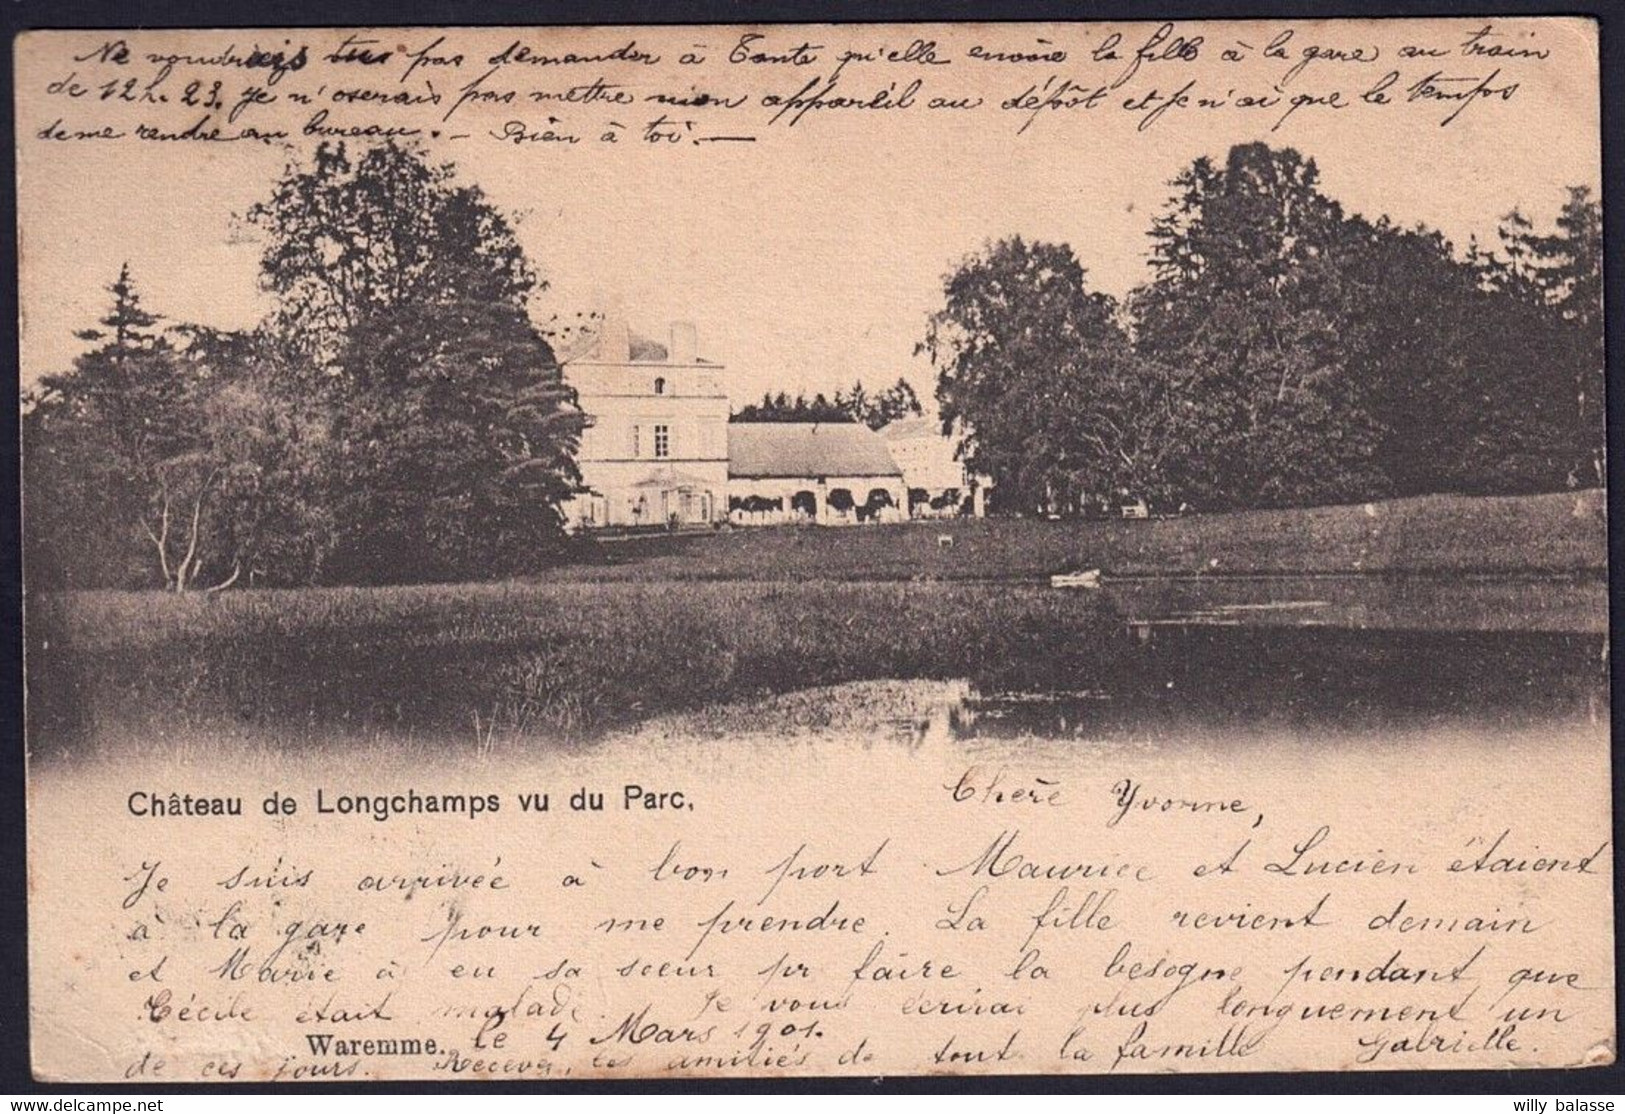 Ne voudrais tu pas demander à Tante qu'elle envoie la fille à la gare au train
de 12h. 23. Je n'oserais pas mettre mon appareil au dépôt et je n'ai que le temps
de me rendre au bureau. - Bien à toi. -
Château de Longchamps vu du Parc.
Chère Yvonne,
Je suis arrivée à bon port. Maurice et Lucien étaient
à la gare pour me prendre. La fille revient demain
et Marie à eu sa soeur pr faire la besogne pendant que
Cécile était malade. Je vous écrirai plus longuement un
Waremme. le 4 Mars 1901.
de ces jours. Recevez les amitiés de tout la famille Gabrielle.
willy balasse